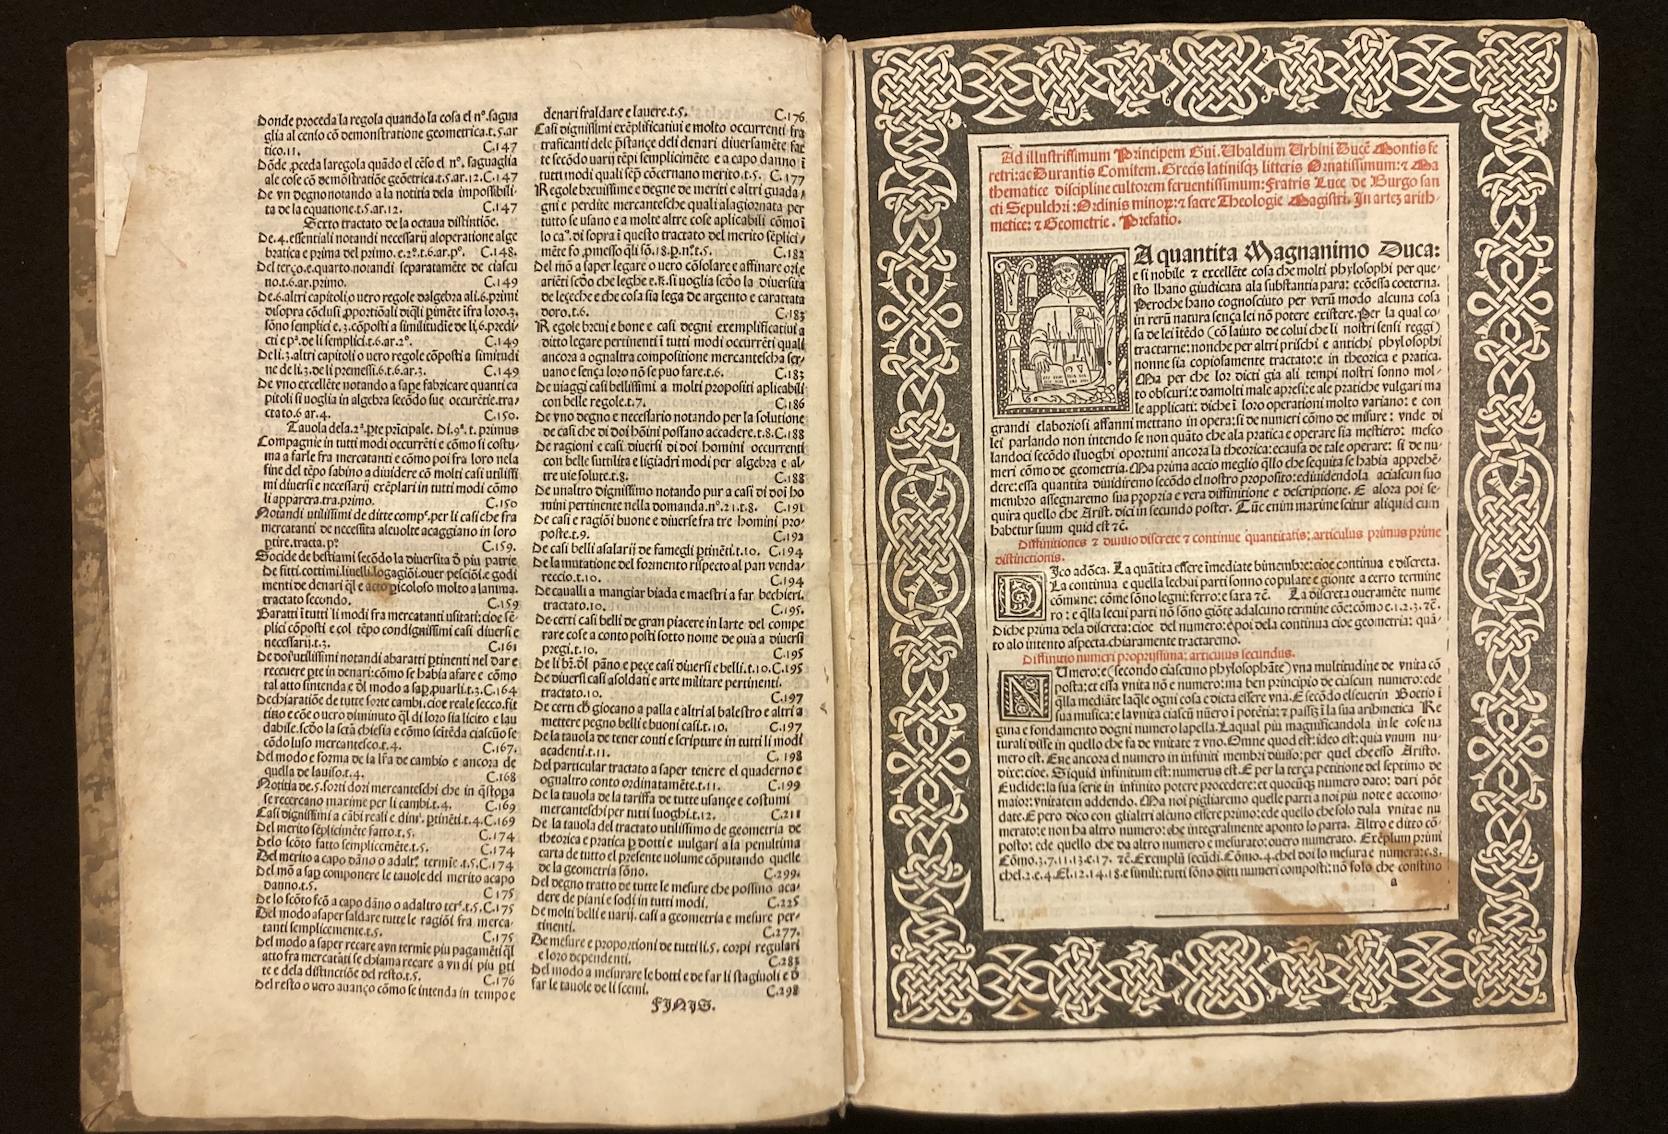 Donde proceda la regola quando la cosa el nº. sagua
glia al censo cō demonstratione geometrica.t.5.ar
tico.11. C.147
Dōde p̱ceda la regola quādo el cēso el nº. saguaglia
ale cose cō demōstratiōe geōetrica.t.5.ar.12. C.147
De vn degno notando a la notitia dela impossibili-
ta de la equatione.t.5.ar.12. C.147
Sexto tractato de la octaua distintiōe.
De.4.essentiali notandi necessarij aloperatione alge
bratica e prima del primo.e.2º.t.6.ar.pº. C.148.
Del terço.e.quarto.notandi separatamēte de ciascu
no.t.6.ar.primo. C.149
De.6.altri capitoli o uero regole dalgebra ali.6.primi
disopra cōclusi p̱portiōali diq̄li p̱mēte īfra loro.3.
sōno semplici e.3.cōposti a similitudīe de li.6.predi-
cti e pª.de li semplici.t.6.ar.2º. C.149
De li.3.altri capitoli o uero regole cōposti a simitudi
ne de li.3.de li premessi.6.t.6.ar.3. C.149
De vno excellēte notando a sape fabricare quanti ca
pitoli si uoglia in algebra secōdo sue occurētie.tra-
ctato.6 ar.4. C.150.
Tauola dela.2ª.p̱te p̄ricipale. Di.9ª.t.primus
Compagnie in tutti modi occurrēti e cōmo si costu-
ma a farle fra mercatanti e cōmo poi fra loro nela
fine del tēpo sabino a diuidere cō molti casi utilissi
mi diuersi e necessarij exēplari in tutti modi cōmo
li apparera.tra.primo. C.150
Notandi utilissimi de ditte compᵉ.per li casi che fra
mercatanti de necessita aleuolte acaggiano in loro
p̱tire.tracta.pº. C.159.
Socide de bestiami secōdo la diuersita d̄ piu patrie
de fitti.cottimi.liuelli.logagiōi.ouer pesciōi.e godi
menti de denari q̄l e acto picoloso molto a lanima.
tractato secondo. C.159
Baratti i tutti li modi fra mercatanti usitati: cioe sē-
plici cōposti e col tēpo condignissimi casi diuersi e
necessarij.t.3. C.161
De doi utilissimi notandi abaratti p̱tinenti nel dar e
receuere p̱te in denari: cōmo se habia afare e cōmo
tal atto sintenda e d̄l modo a sap̱.p̱uarli.t.3. C.164
Dechiaratiōe de tutte sorte cambi.cioe reale secco.fit
titio e cōe o uero diminuto q̄l di loro sia licito e lau
dabile.scdo la sctā chiesia e cōmo scitēda ciascūo se
cōdo luso mercantesco.t.4. C.167.
Del modo e forma de la lr̄a de cambio e ancora de
quella de lauiso.t.4. C.168
Notitia de.5.sorti dori mercanteschi che in q̄stopa
se recercano maxime per li cambi.t.4. C.169
Casi dignissimi a cābi reali e dini. p̱tinēti.t.4. C.169
Del merito sēplicimēte fatto.t.5. C.174
Delo scōto fatto semplicemēte.t.5. C.174
Del merito a capo dāno o adaltº. termīe.t.5. C.174
Del mō a sap componere le tauole del merito acapo
danno.t.5. C 175
De lo scōto fcō a capo dāno o adaltro terᵉ.t.5. C.175
Del modo asaper saldare tutte le ragiōi fra merca-
tanti semplicemente.t.5. C.175
Del modo a saper recare avn termīe piu pagamēti q̄l
atto fra mercatāti se chiama recare a vn di piu p̱ti
te e dela distinctiōe del resto.t.5. C.176
Del resto o vero auanço cōmo se intenda in tempo e
denari fraldare e lauere.t.5. C.176
Casi dignissimi exēplificatiui e molto occurrenti fra
traficanti dele p̄stançe deli denari diuersamēte fat
te secōdo uarij tēpi semplicimēte e a capo danno: ī
tutti modi quali sep̄ cōcernano merito.t.5. C.177
Regole breuissime e degne de meriti e altri guada,
gni e perdite mercantesche quali alagiornata per
tutto se usano e a molte altre cose aplicabili cōmo ī
lo caº.di sopra ī questo tractato del merito sēplici,
mēte fo p̱messo q̄li sō.18.p̱.nº.t.5. C.182
Del mō a saper legare o uero cōsolare e affinare ori.e
ariēti scdo che leghe e.k.si uoglia scdo la diuersita
de leçeche e che cosa sia lega de argento e carattata
doro.t.6. C.183
Regole breui e bone e casi degni exemplificatiui a
ditto legare pertinenti ī tutti modi occurrēti quali
ancora a ognaltra compositione mercantescha ser-
uano e sença loro nō se puo fare.t.6. C.183
De uiaggi casi bellissimi a molti propositi aplicabili
con belle regole.t.7. C.186
De vno degno e necessario notando per la solutione
de casi che di doi hōini possano accadere.t.8. C.188
De ragioni e casi diuersi di doi homini occurrenti
con belle suttilita e ligiadri modi per algebra e al-
tre uie solute.t.8. C.188
De unaltro dignissimo notando pur a casi di doi ho
mini pertinente nella domanda.nº.21.t.8. C.191
De casi e ragiōi buone e diuerse fra tre homini pro-
poste.t.9. C.192
De casi belli asalarij de famegli p̱tinēti.t.10. C.194
De la mutatione del formento rispecto al pan venda-
reccio.t.10. C.194
De caualli a mangiar biada e maestri a far bechieri.
tractato.10. C.195.
De certi casi belli de gran piacere in larte del compe
rare cose a conto posti sotto nome de oua a diuersi
pregi.t.10. C.195
De li br̄.d̄l pāno e peçe casi diuersi e belli.t.10. C.195
De diuersi casi asoldati e arte militare pertinenti.
tractato.10. C.197
De certi ch̄ giocano a palla e altri al balestro e altri a
mettere pegno belli e buoni casi.t.10. C.197
De la tauola de tener conti e scripture in tutti li modi
acadenti.t.11. C. 198
Del particular tractato a saper tenere el quaderno e
ognaltro conto ordinatamēte.t.11. C.199
De la tauola de la tariffa de tutte usançe e costumi
mercanteschi per tutti luoghi.t.12. C.211
De la tauola del tractato utilissimo de geometria de
theorica e pratica p̱ dotti e uulgari a la penultima
carta de tutto el presente uolume cōputando quelle
de la geometria sōno. C.299.
Del degno tratto de tutte le mesure che possino aca-
dere de piani e sodi in tutti modi. C.225
De molti belli e uarij. casi a geometria e mesure per-
tinenti. C.277.
De mesure e proportioni de tutti li.5. corpi regulari
e loro dependenti. C.283
Del modo a mesurare le botti e de far li stagiuoli e d̄
far le tauole de li scemi. C.298
FINIS.
Ad illustrissimum Principem Gui. Ubaldum Urbini Ducē Montis fe
retri: ac Durantis Comitem. Grecis latinisq̄ litteris Ornatissimum: ⁊ Ma
thematice discipline cultorem feruentissimum: Fratris Luce de Burgo san
cti Sepulchri: Ordinis minoꝝ: ⁊ sacre Theologie Magistri. In artez arith-
metice: ⁊ Geometrie. Prefatio.
A quantita Magnanimo Duca:
e si nobile ⁊ excellēte cosa che molti phylosophi per que-
sto lhano giudicata ala substantia para: e cōessa coeterna.
Peroche hano cognosciuto per verū modo alcuna cosa
in rerū natura sença lei nō potere existere. Per la qual co-
sa de lei ītēdo (cō laiuto de colui che li nostri sensi reggi)
tractarne: nonche per altri prischi e antichi phylosophi
nonne sia copiosamente tractato: e in theorica e pratica.
Ma per che lor dicti gia ali tempi nostri sonno mol-
to obscuri: e da molti male apresi: e ale pratiche vulgari ma
le applicati: diche ī loro operationi molto variano: e con
grandi elaboriosi affanni mettano in opera: si de numeri cōmo de misure: vnde di
lei parlando non intendo se non quāto che ala pratica e operare sia mestiero: mesco
landoci secōdo iluoghi oportuni ancora la theorica: e causa de tale operare: si de nu-
meri cōmo de geometria. Ma prima accio meglio q̄llo che sequita se habia apprehē-
dere: essa quantita diuidiremo secōdo el nostro proposito: ediuidendola aciascun suo
membro assegnaremo sua propria e vera diffinitione e descriptione. E alora poi se-
quira quello che Arist. dici in secundo poster. Tūc enim maxime scitur aliquid cum
habetur suum quid est ⁊c̄.
Diffinitiones ⁊ diuisio discrete ⁊ continue quantitatis: articulus primus prime
distinctionis.
DIco adōca. La quātita essere īmediate bimembre: cioe continua e discreta.
La continua e quella lechui parti sonno copulate e gionte a certo termine
cōmune: cōme sōno legni: ferro: e saxa ⁊c̄. La discreta oueramēte nume
ro: e q̄lla lecui parti nō sōno giōte adalcuno termine cōe: cōmo e.1.2.3. ⁊c̄.
Diche prima dela discreta: cioe del numero: e poi dela continua cioe geometria: quā-
to alo intento aspecta. chiaramente tractaremo.
Diffinitio numeri propriissima: articulus secundus.
NUmero: e (secondo ciascuno phylosophāte) vna multitudine de vnita cō
posta: et essa vnita nō e numero: ma ben principio de ciascun numero: ede
q̄lla mediāte laq̄le ogni cosa e dicta essere vna. E secōdo elseuerin Boetio ī
sua musica: e la vnita ciascū nūero ī potētia: ⁊ passiʒ ī la sua aritmetica Re
gina e fondamento dogni numero lapella. Laqual piu magnificandola in le cose na
turali disse in quello che fa de vnitate ⁊ vno. Omne quod est: ideo est: quia vnum nu-
mero est. Ene ancora el numero in infiniti membri diuiso: per quel che esso Aristo.
dixe: cioe. Siquid infinitum est: numerus est. E per la terça petitione del septimo de
Euclide: la sua serie in infinito potere procedere: et quocūq̄ numero dato: dari pōt
maior: vnitatem addendo. Ma noi pigliaremo quelle parti a noi piu note e accomo-
date. E pero dico con gli altri alcuno essere primo: ede quello che solo dala vnita e nu
merato: e non ha altro numero: che integralmente aponto lo parta. Altro e ditto cō-
posto: ede quello che da altro numero e mesurato: ouero numerato. Exēplum primi
Cōmo.3.7.11.13.e.17. ⁊c̄. Exemplū secūdi. Cōmo.4.chel doi lo mesura e numera: e.8.
chel.2.e.4.El.12.14.18.e simili: tutti sōno ditti numeri composti: nō solo che constino
a